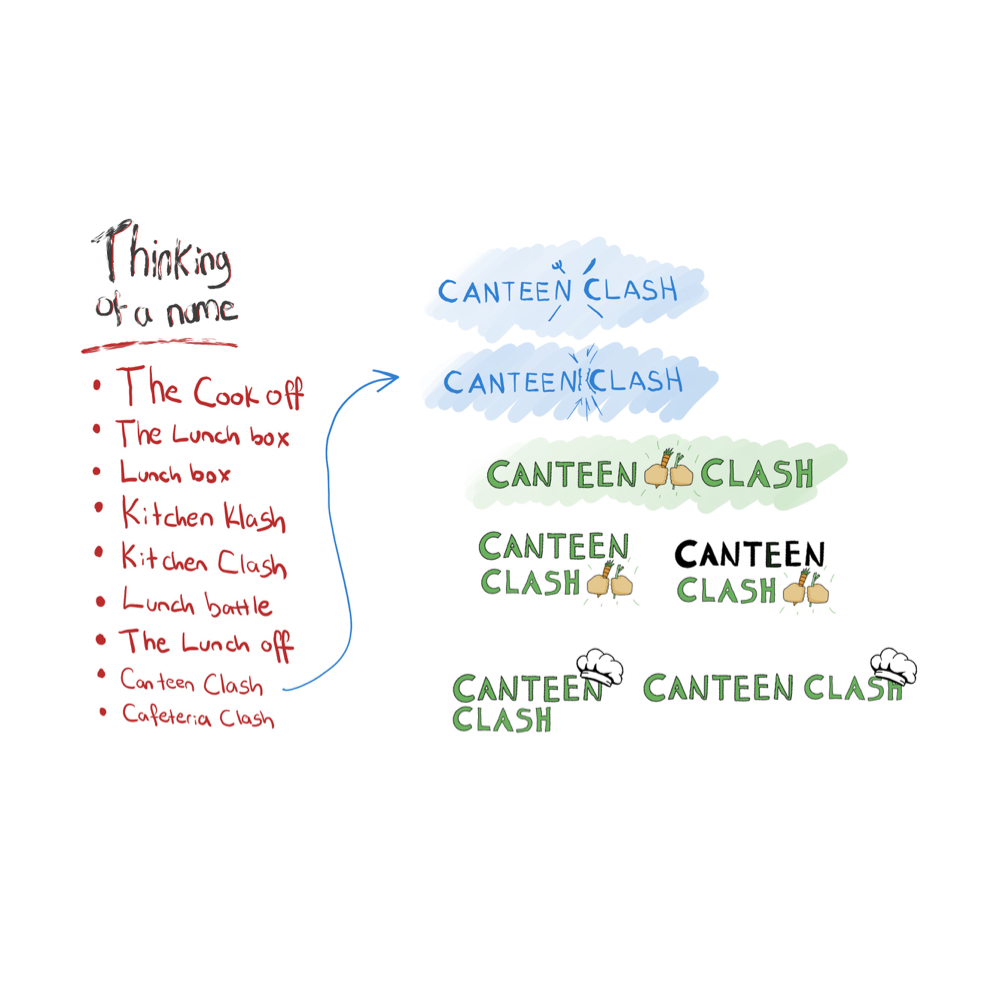 Thinking
of a name
• The Cook off
• The Lunch box
• Lunch box
• Kitchen Klash
• Kitchen Clash
• Lunch battle
• The Lunch off
• Canteen Clash
• Cafeteria Clash
CANTEEN CLASH
CANTEEN CLASH
CANTEEN CLASH
CANTEEN
CLASH
CANTEEN
CLASH
CANTEEN
CLASH
CANTEEN CLASH